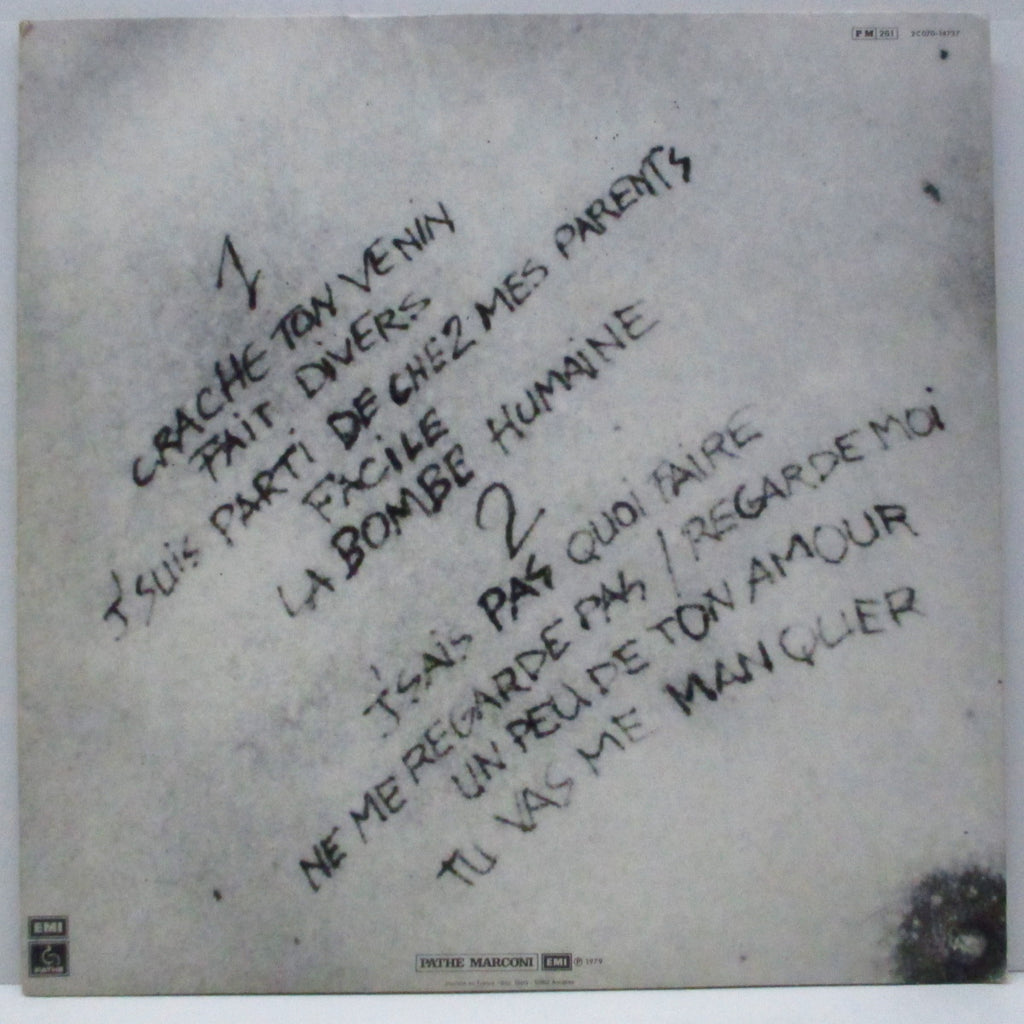 PM 201 2C070-14737
1
CRACHE TON VENIN
FAIT DIVERS
J'SUIS PARTI DE CHEZ MES PARENTS
FACILE
LA BOMBE HUMAINE
2
J'SAIS PAS QUOI FAIRE
NE ME REGARDE PAS / REGARDE MOI
UN PEU DE TON AMOUR
TU VAS ME MANQUER
EMI
PATHE
PATHE MARCONI EMI ℗ 1979